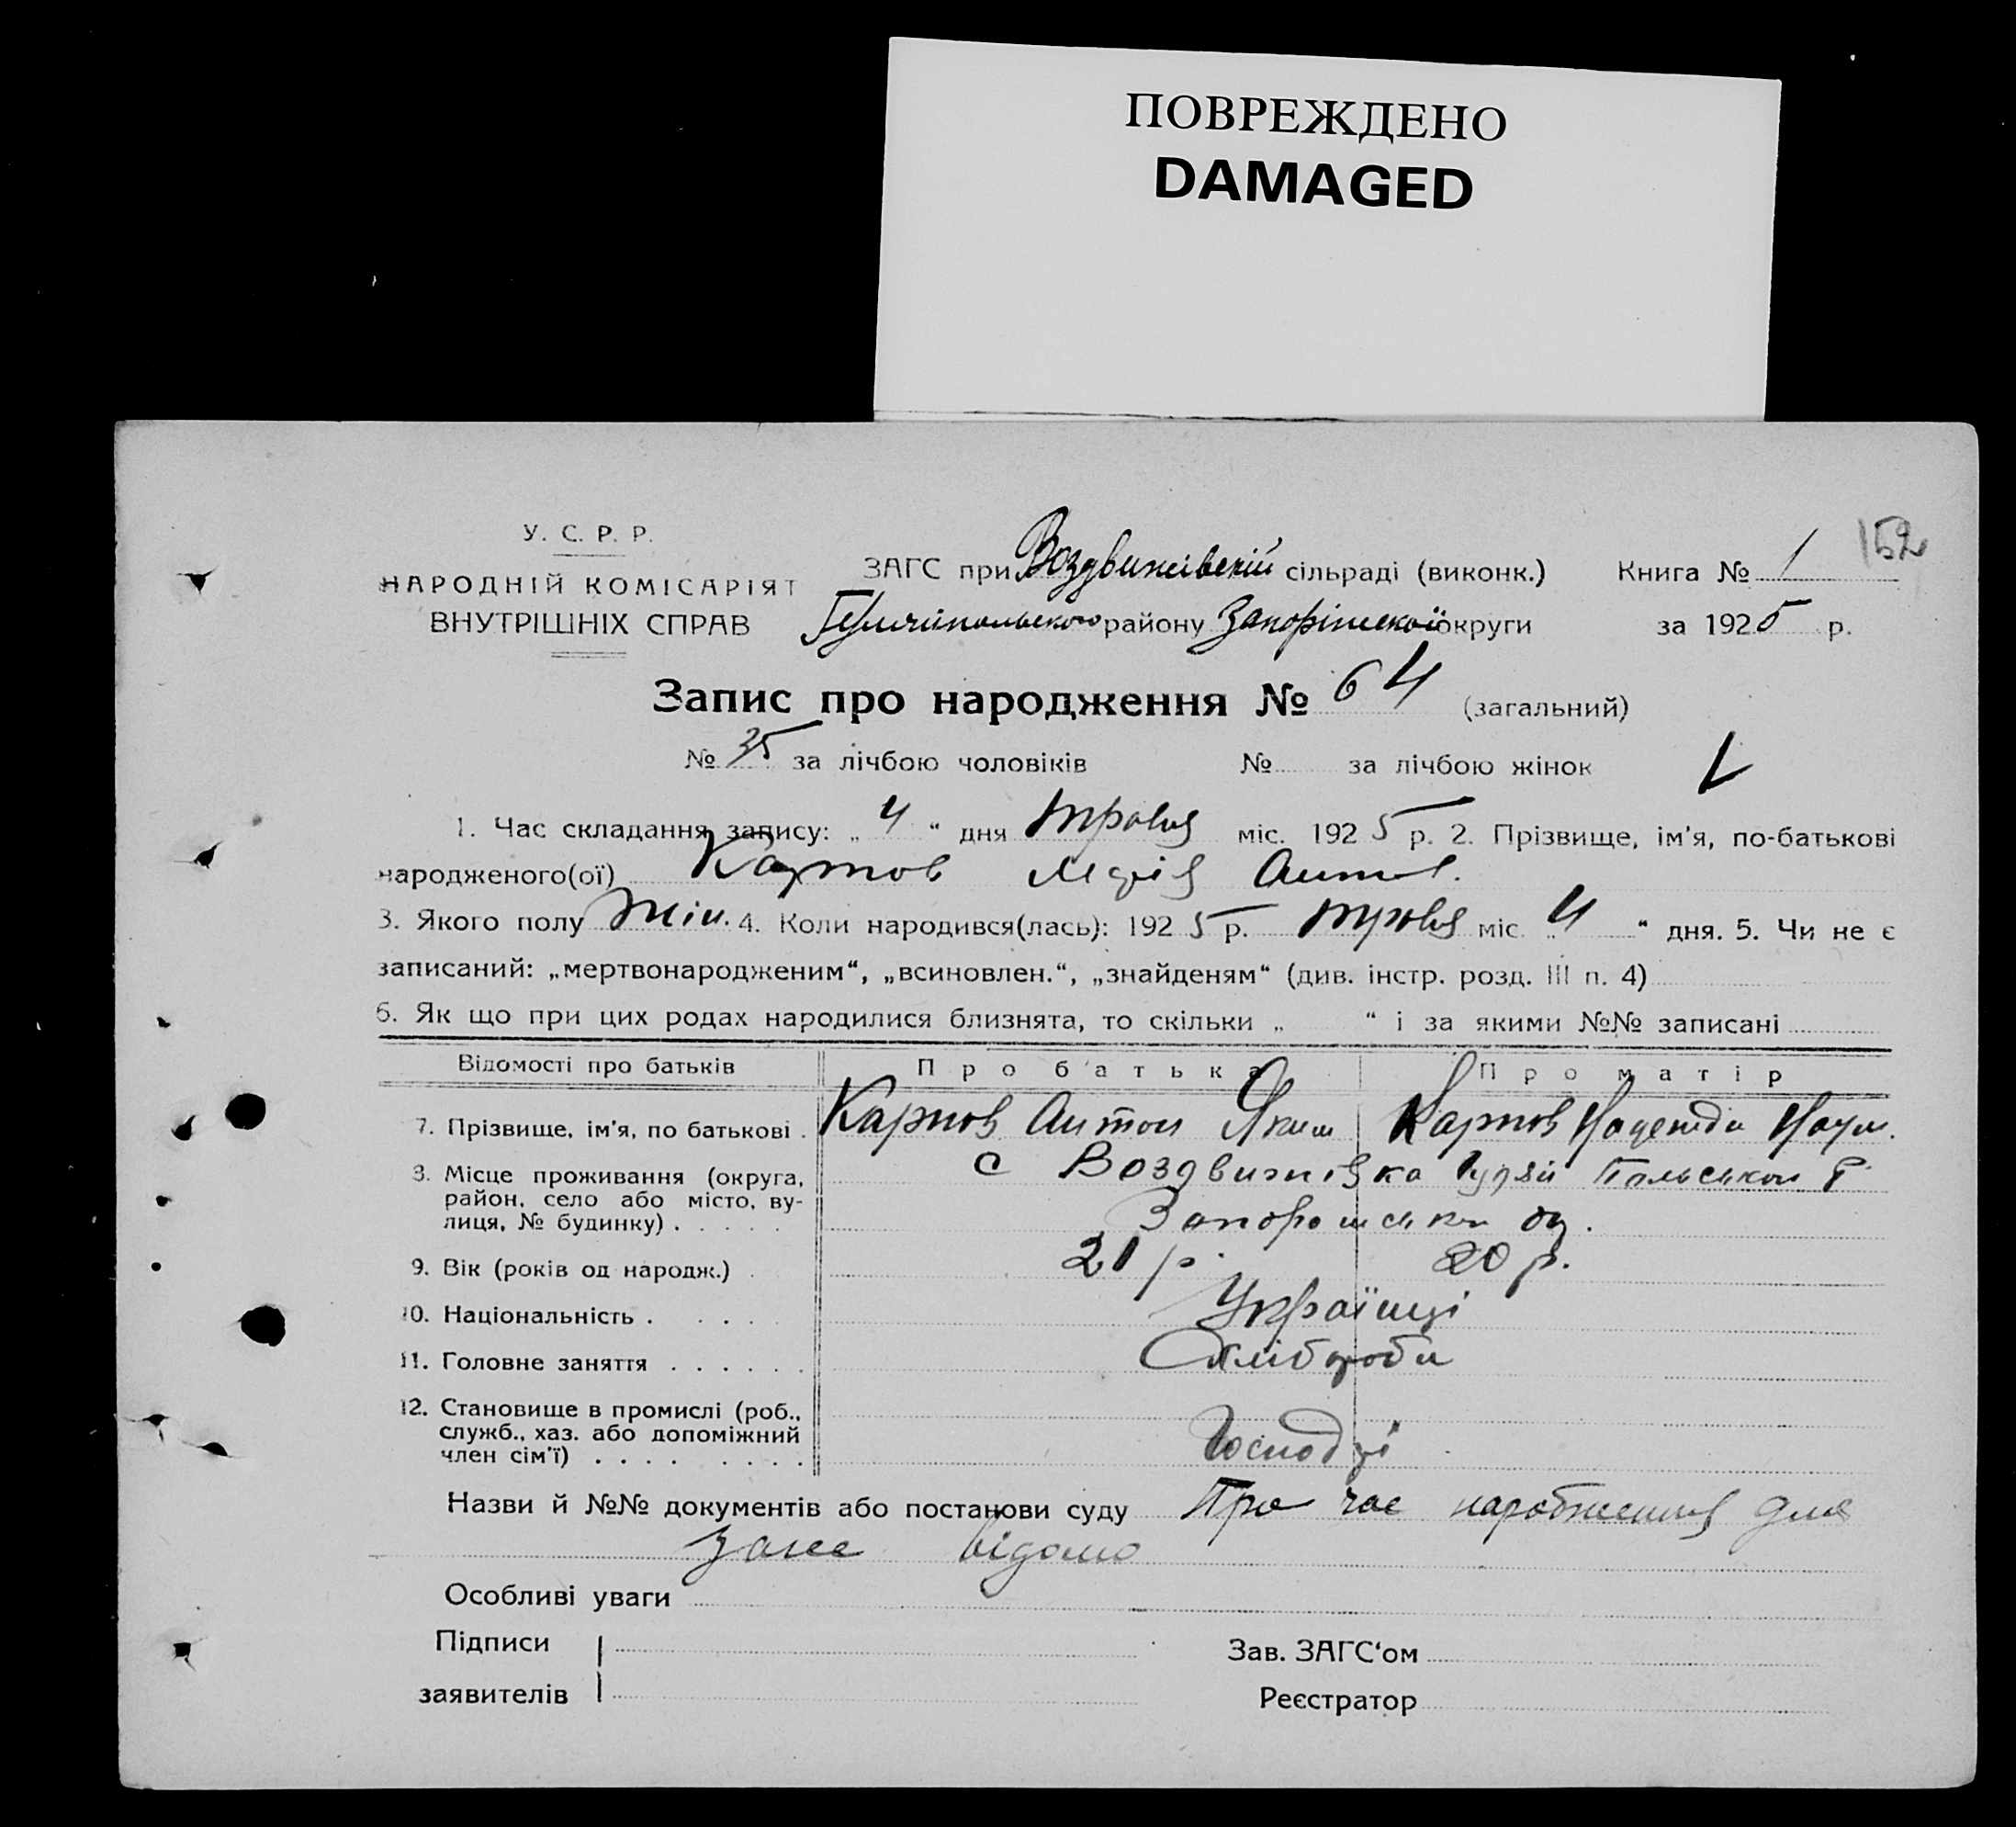 ПОВРЕЖДЕНО
DAMAGED
152
У. С. Р. Р.
НАРОДНІЙ КОМІСАРІЯТ
ВНУТРІШНІХ СПРАВ
ЗАГС при Воздвижівській сільраді (виконк.) Книга № 1
району Запоріжської округи за 1925 р.
Запис про народження № 64 (загальний)
№ 35 за лічбою чоловіків № за лічбою жінок
1. Час складання запису: „ 4 “ дня травня міс. 1925 р. 2. Прізвище, ім'я, по-батькові
народженого(ої) Карпов Марія Антон.
3. Якого полу жін. 4. Коли народився(лась): 1925 р. травня міс. „ 4 “ дня. 5. Чи не є
записаний: „мертвонародженим“, „всиновлен.“, „знайденям“ (див. інстр. розд. III п. 4)
6. Як що при цих родах народилися близнята, то скільки „ “ і за якими №№ записані
Відомості про батьків Про батька Про матір
7. Прізвище, ім'я, по батькові . Карпов Антон Яким Карпов Надежда Наум.
8. Місце проживання (округа, район, село або місто, вулиця, № будинку) . . . . . с Воздвижівка Гуляй Польськои Р
Запорожськи ок.
9. Вік (років од народж.) . 21 р. 20 р.
10. Національність . . . . . Українці
11. Головне заняття . . . . . . Хлібороби
12. Становище в промислі (роб., служб., хаз. або допоміжний член сім'ї) . . . . . . . . Господрі
Назви й №№ документів або постанови суду Про час народження для
відомо
Особливі уваги
Підписи
заявителів
Зав. ЗАГС‘ом
Реєстратор